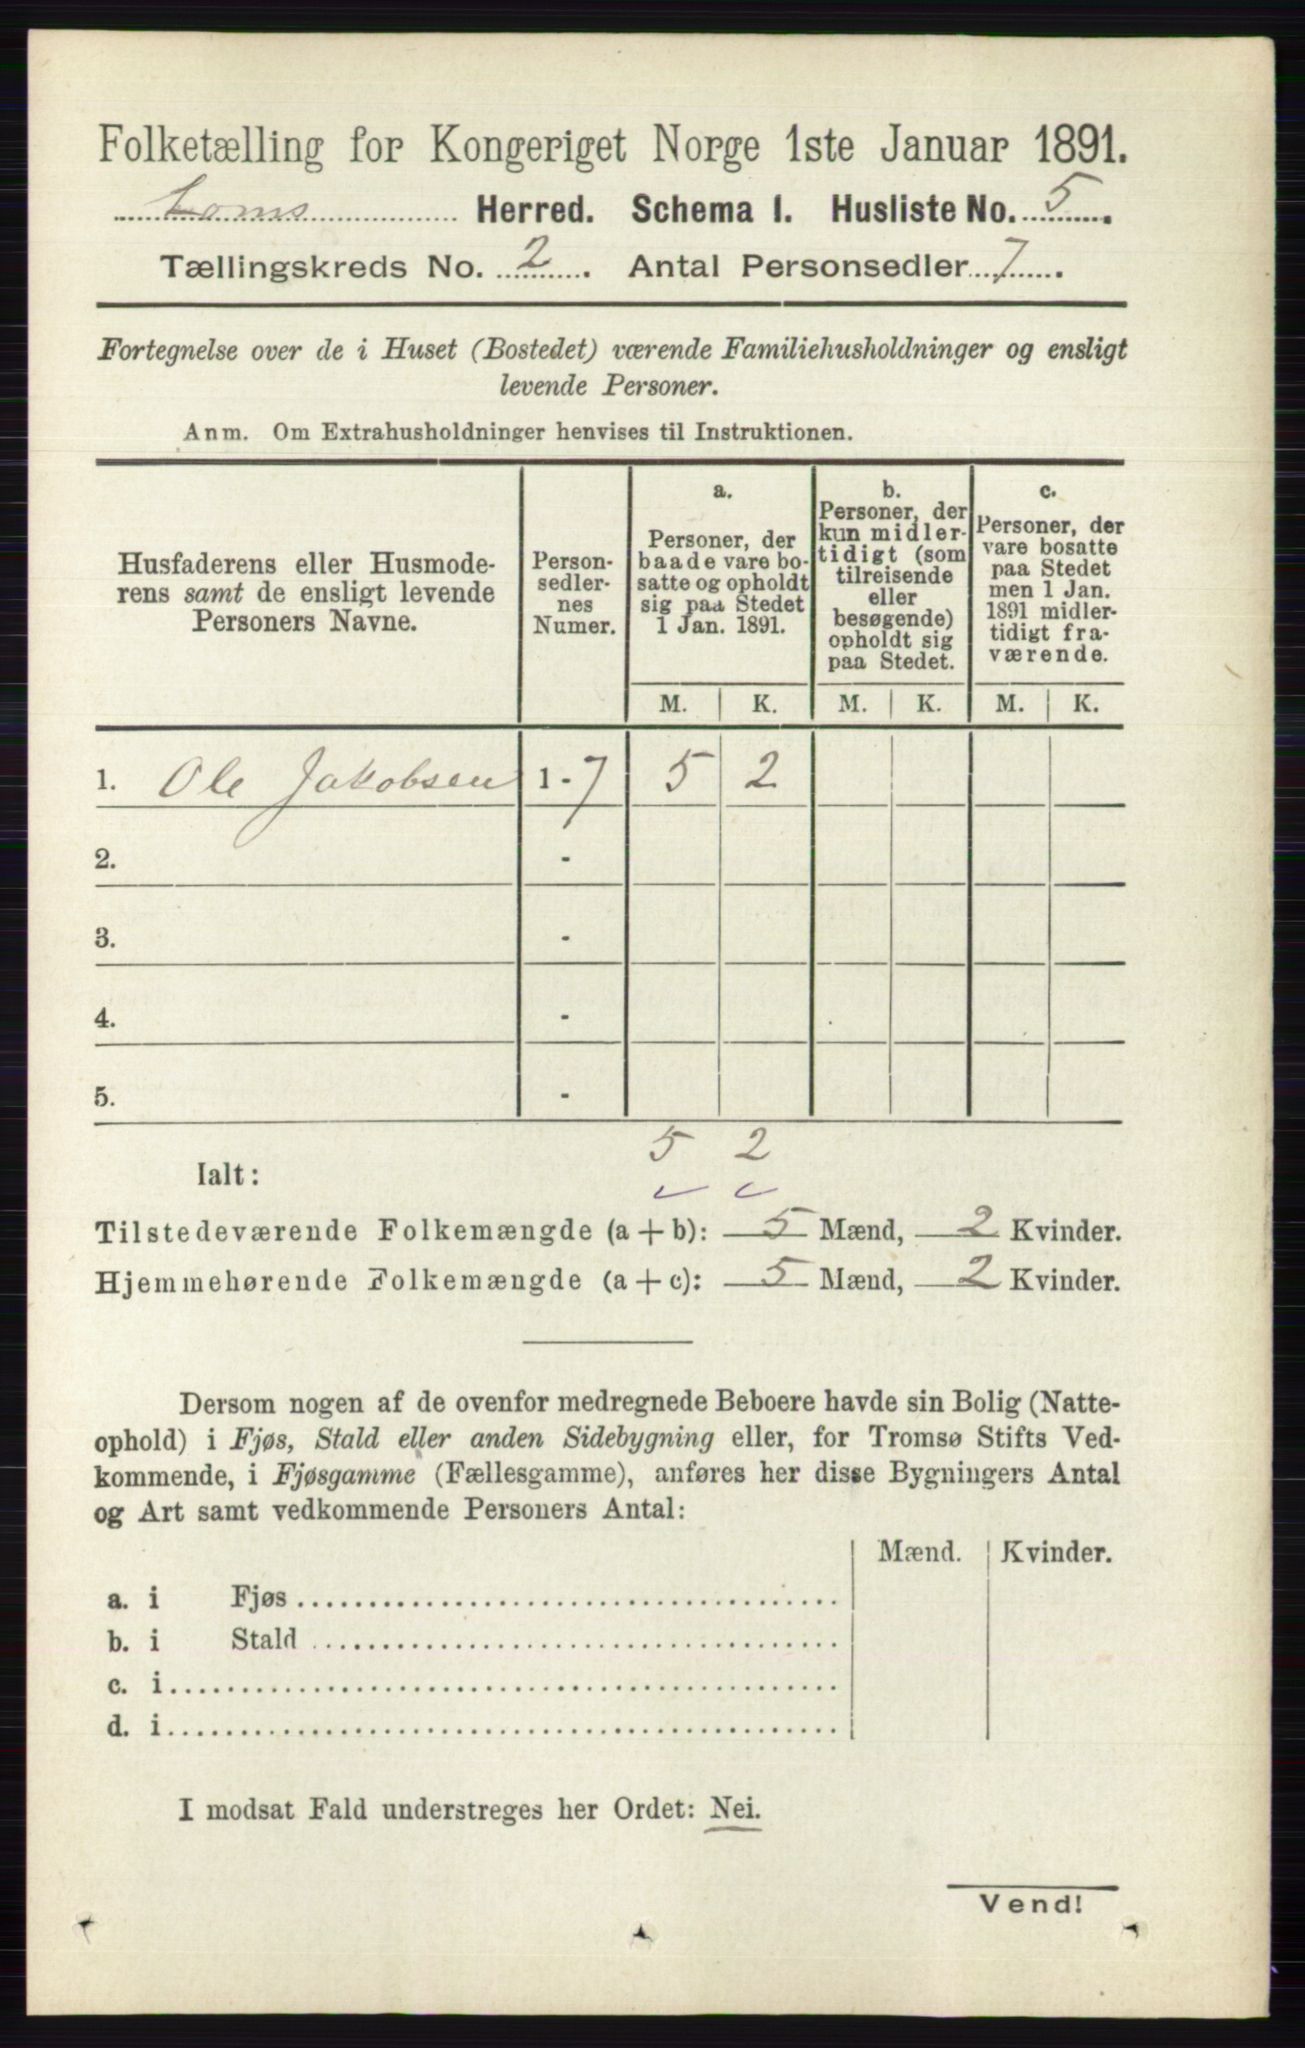 Folketælling for Kongeriget Norge 1ste Januar 1891.
Loms Herred. Schema I. Husliste No. 5.
Tællingskreds No. 2. Antal Personsedler 7.
Fortegnelse over de i Huset (Bostedet) værende Familiehusholdninger og ensligt
levende Personer.
Anm. Om Extrahusholdninger henvises til Instruktionen.
Husfaderens eller Husmode-
rens samt de ensligt levende
Personers Navne.
Person-
sedler-
nes
Numer.
a.
Personer, der
baade vare bo-
satte og opholdt
sig paa Stedet
1 Jan. 1891.
b.
Personer, der
kun midler-
tidigt (som
tilreisende
eller
besøgende)
opholdt sig
paa Stedet.
c.
Personer, der
vare bosatte
paa Stedet
men 1 Jan.
1891 midler-
tidigt fra-
værende.
M. K. M. K. M. K.
1. Ole Jakobsen 1 - 7 5 2
2. -
3. -
4. -
5. -
5 2
Ialt:
Tilstedeværende Folkemængde (a + b): 5 Mænd, 2 Kvinder.
Hjemmehørende Folkemængde (a + c): 5 Mænd, 2 Kvinder.
Dersom nogen af de ovenfor medregnede Beboere havde sin Bolig (Natte-
ophold) i Fjøs, Stald eller anden Sidebygning eller, for Tromsø Stifts Ved-
kommende, i Fjøsgamme (Fællesgamme), anføres her disse Bygningers Antal
og Art samt vedkommende Personers Antal:
Mænd. Kvinder.
a. i Fjøs
b. i Stald
c. i
d. i
I modsat Fald understreges her Ordet: Nei.
Vend!